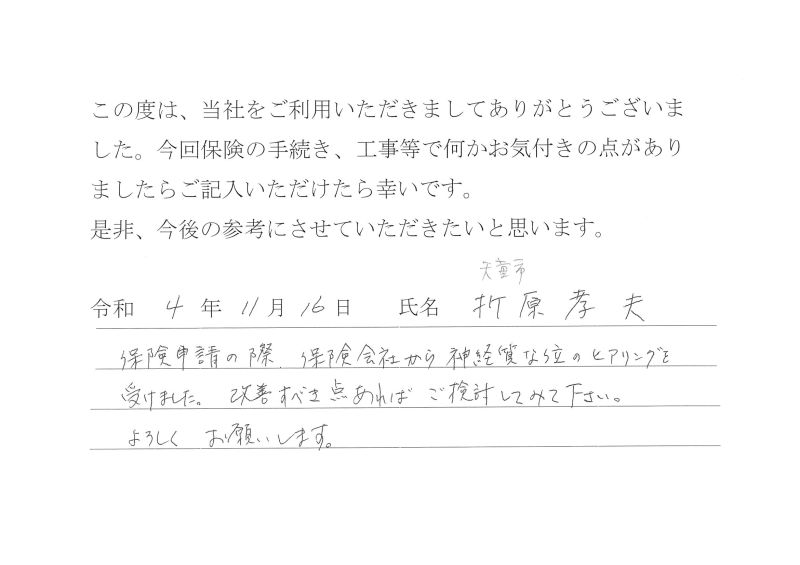 この度は、当社をご利用いただきましてありがとうございま
した。今回保険の手続き、工事等で何かお気付きの点があり
ましたらご記入いただけたら幸いです。
是非、今後の参考にさせていただきたいと思います。
天童市
令和 4 年 11 月 16 日 氏名 折原孝夫
保険申請の際、保険会社から神経質な位のヒアリングを
受けました。改善すべき点あればご検討してみて下さい。
よろしくお願いします。